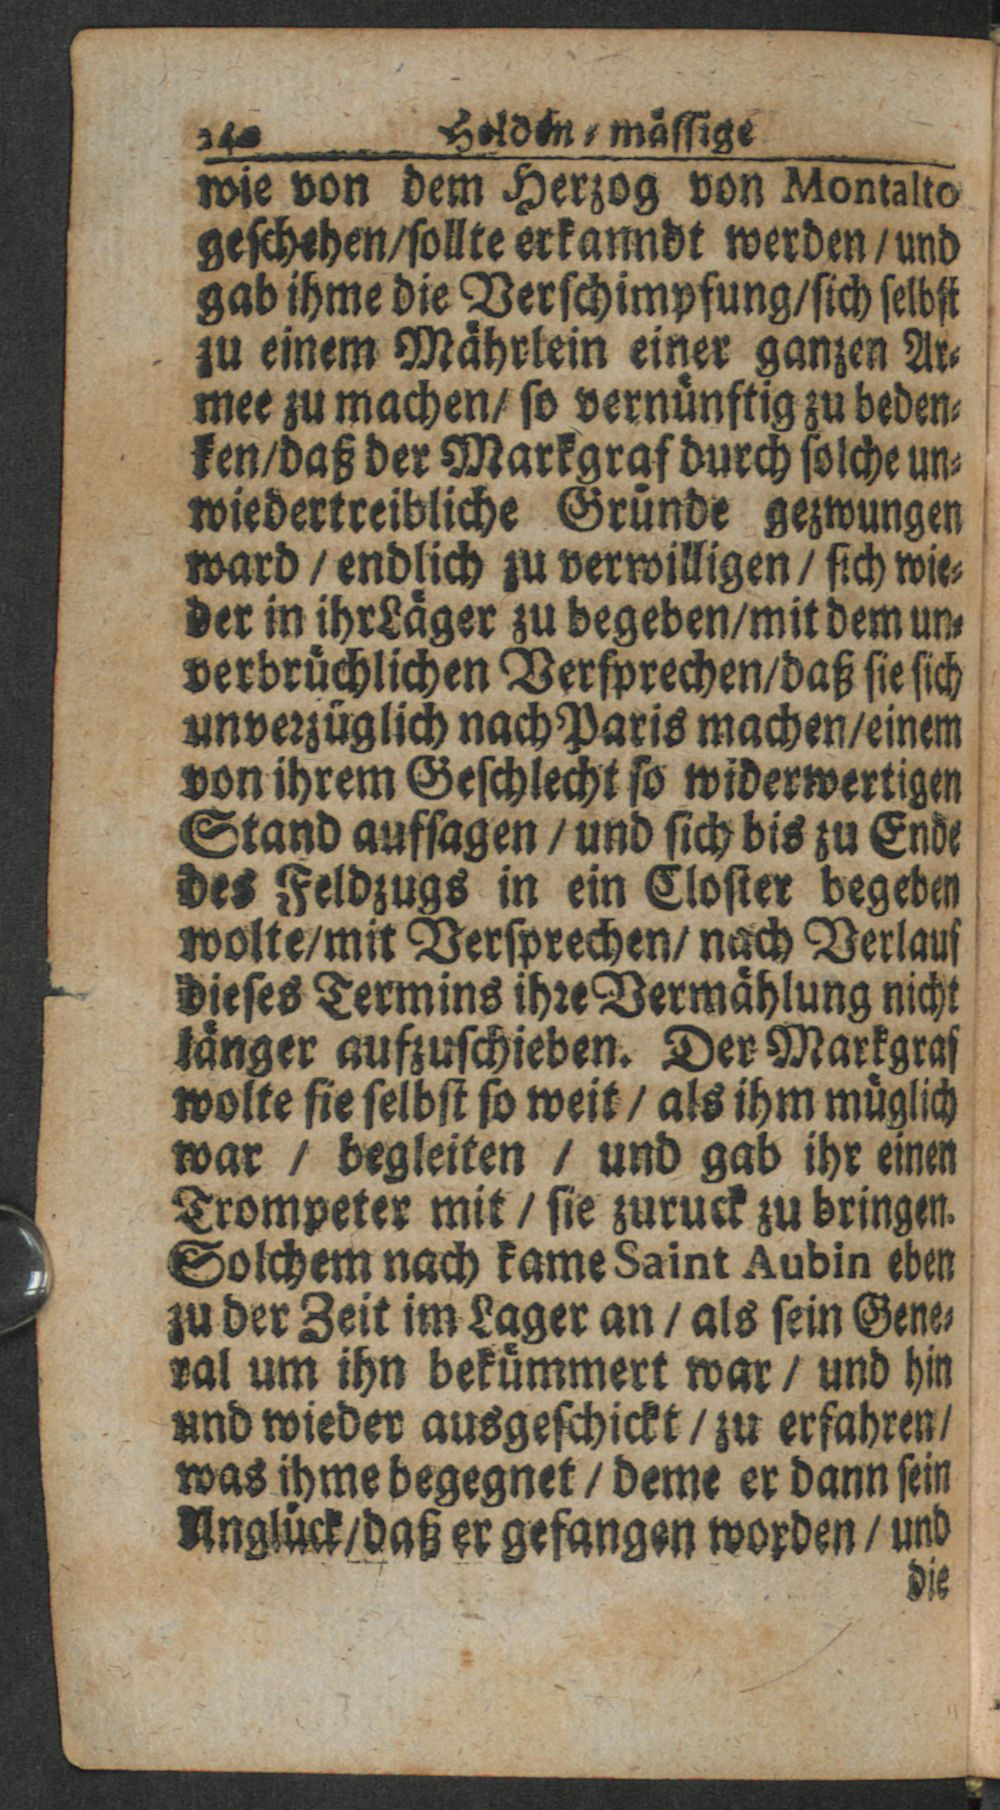 240 Helden-mässige
wie von dem Herzog von Montalto
geschehen/sollte erkanndt werden / und
gab ihme die Verschimpfung/sich selbst
zu einem Mährlein einer ganzen Ar-
mee zu machen/ so vernünftig zu beden-
ken/daß der Markgraf durch solche un-
wiedertreibliche Gründe gezwungen
ward / endlich zu verwilligen / sich wie-
der in ihr Läger zu begeben/mit dem un-
verbrüchlichen Versprechen/daß sie sich
unverzüglich nach Paris machen/einem
von ihrem Geschlecht so widerwertigen
Stand aufsagen / und sich bis zu Ende
des Feldzugs in ein Closter begeben
wolte/mit Versprechen/ nach Verlauf
dieses Termins ihre Vermählung nicht
länger aufzuschieben. Der Markgraf
wolte sie selbst so weit / als ihm müglich
war / begleiten / und gab ihr einen
Trompeter mit / sie zuruck zu bringen.
Solchem nach kame Saint Aubin eben
zu der Zeit im Lager an / als sein Gene-
ral um ihn bekümmert war / und hin
und wieder ausgeschickt / zu erfahren/
was ihme begegnet / deme er dann sein
Unglück/daß er gefangen worden / und
die